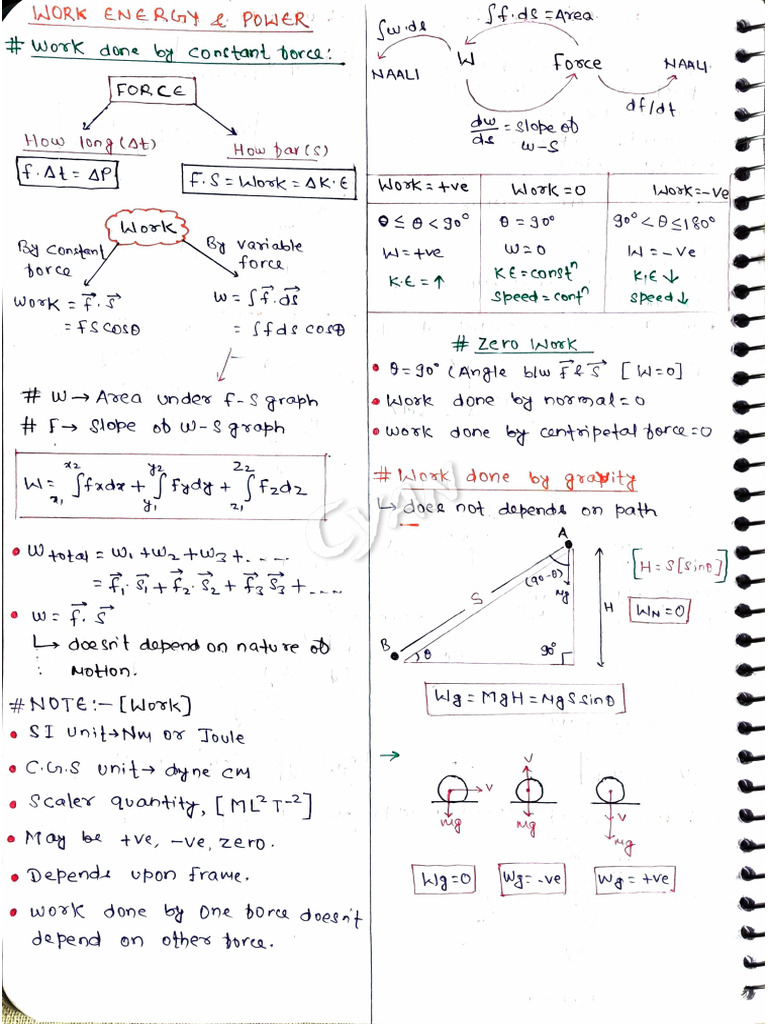 WORK ENERGY & POWER
# Work done by constant force:
FORCE
How long (Δt)
How far (S)
f.Δt = ΔP
F.S = Work = ΔK.E
Work
By constant force
By variable force
Work = f⃗.s⃗
= FS cosθ
W = ∫f⃗.ds⃗
= ∫fds cosθ
# W → Area under f-S graph
# F → Slope of W-S graph
W = x₁∫x2 fxdx + y₁∫y2 fydy + z₁∫z2 fzdz
• Wtotal = W₁ + W₂ + W₃ + ....
= f⃗₁.s⃗₁ + f⃗₂.s⃗₂ + f⃗₃s⃗₃ + ....
• W = f⃗.s⃗
↳ doesn't depend on nature of
Motion.
# NOTE:- [Work]
• SI unit → Nm or Joule
• C.G.S unit → dyne cm
• Scaler quantity, [ML²T⁻²]
• May be +ve, -ve, zero.
• Depends upon frame.
• Work done by one force doesn't
depend on other force.
∫f.ds = Area
∫w.ds
NAALI
W
Force
NAALI
df/dt
dw/ds = slope of
W-S
Work = +ve
Work = 0
Work = -ve
0 ≤ θ < 90°
θ = 90°
90° < θ ≤ 180°
W = +ve
W = 0
W = -ve
K.E = ↑
KE = constⁿ
K.E ↓
Speed = contⁿ
speed ↓
# Zero Work
• θ = 90° (Angle b/w F⃗ & S⃗ [W=0]
• Work done by normal = 0
• Work done by centripetal force = 0
# Work done by gravity
↳ does not depends on path
A
(90-θ)
Mg
S
H
[H = S[Sinθ]]
WN = 0
B
θ
90°
Wg = MgH = MgS sinθ
→
V
V
V
Mg
Mg
Mg
Wg = 0
Wg = -ve
Wg = +ve
Cyan